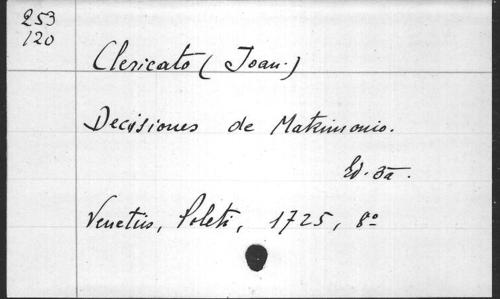 253
120
Clericato (Joan.)
Decisiones de Matrimonio.
Ed. 3a.
Venetiis, Poleti, 1725, 8º